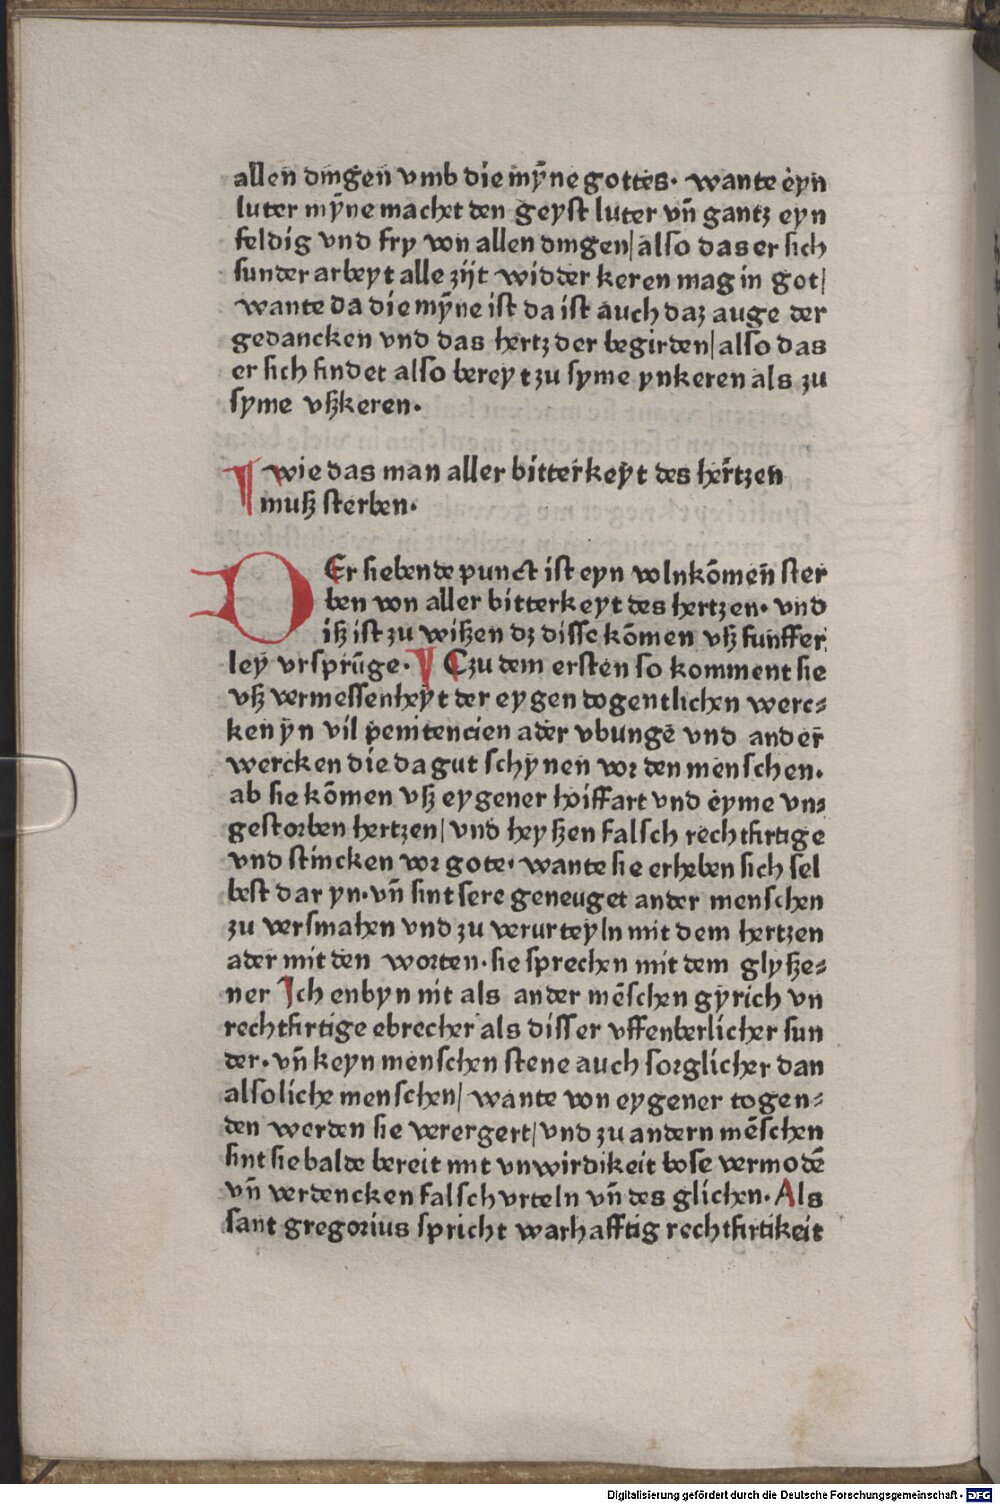 allen dingen vmb die mȳne gottes· wante eyn
luter mȳne machet den geyst luter vn̄ gantz eyn
feldig vnd fry von allen dingen| also das er sich
sunder arbeyt alle zijt widder keren mag in got|
wante da die mȳne ist da ist auch daz auge der
gedancken vnd das hertz der begirden| also das
er sich findet also bereyt zu syme ynkeren als zu
syme vßkeren·
¶ wie das man aller bitterkeyt des hertzen
muß sterben·
DEr siebende punct ist eyn volnkōmen ster
ben von aller bitterkeyt des hertzen· vnd
iß ist zu wißen dz disse kōmen vß funffer
ley vrsprūge· ¶ Czu dem ersten so komment sie
vß vermessenheyt der eygen dogentlichen werc⸗
ken yn vil penitencien ader vbungē vnd ander̄
wercken die da gut schynen vor den menschen·
ab sie kōmen vß eygener hoiffart vnd eyme vn⸗
gestorben hertzen| vnd heyßen falsch rechtfirtige
vnd stincken vor gote· wante sie erheben sich sel
best dar yn· vn̄ sint sere geneuget ander menschen
zu versmahen vnd zu verurteyln mit dem hertzen
ader mit den worten· sie sprechen mit dem glyße⸗
ner Ich enbyn nit als ander mēschen gyrich vn
rechtfirtige ebrecher als disser vffenberlicher sun
der· vn̄ keyn menschen stene auch sorglicher dan
alsoliche menschen| wante von eygener togen⸗
den werden sie verergert| vnd zu andern mēschen
sint sie balde bereit mit vnwirdikeit bose vermodē
vn̄ verdencken falsch vrteln vn̄ des glichen· Als
sant gregorius spricht warhafftig rechtfirtikeit
Digitalisierung gefördert durch die Deutsche Forschungsgemeinschaft - DFG